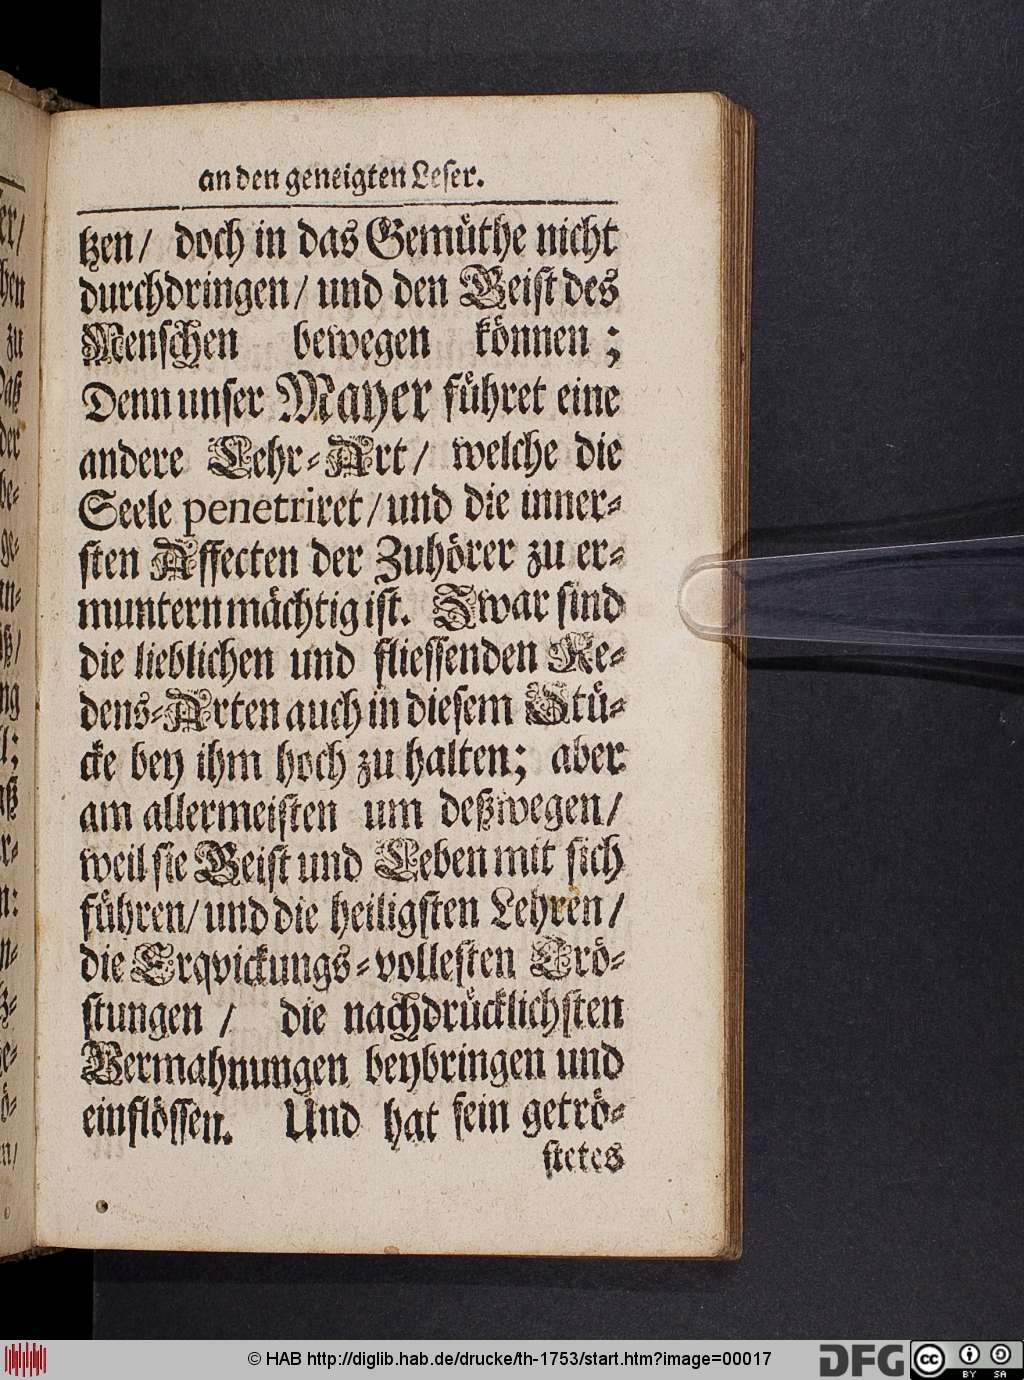 an den geneigten Leser.
tzen/ doch in das Gemüthe nicht
durchdringen/ und den Geist des
Menschen bewegen können;
Denn unser Mayer führet eine
andere Lehr-Art/ welche die
Seele penetriret/ und die inner-
sten Affecten der Zuhörer zu er-
muntern mächtig ist. Zwar sind
die lieblichen und fliessenden Re-
dens-Arten auch in diesem Stü-
cke bey ihm hoch zu halten; aber
am allermeisten um deßwegen/
weil sie Geist und Leben mit sich
führen/ und die heiligsten Lehren/
die Erqvickungs-vollesten Trö-
stungen/ die nachdrücklichsten
Vermahnungen beybringen und
einflössen. Und hat sein getrö-
stetes
© HAB http://diglib.hab.de/drucke/th-1753/start.htm?image=00017
DFG
cc BY SA